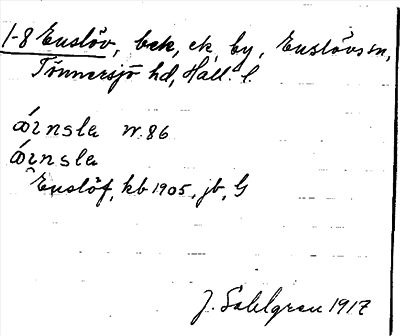 1-8 Enslöv, bek, ck, by, Enslövs sn,
Tönnersjö hd, Hall. l.
ǿnsla n. 86
ǿnsla
Enslöf, kb 1905, jb, G
J. Sahlgren 1917